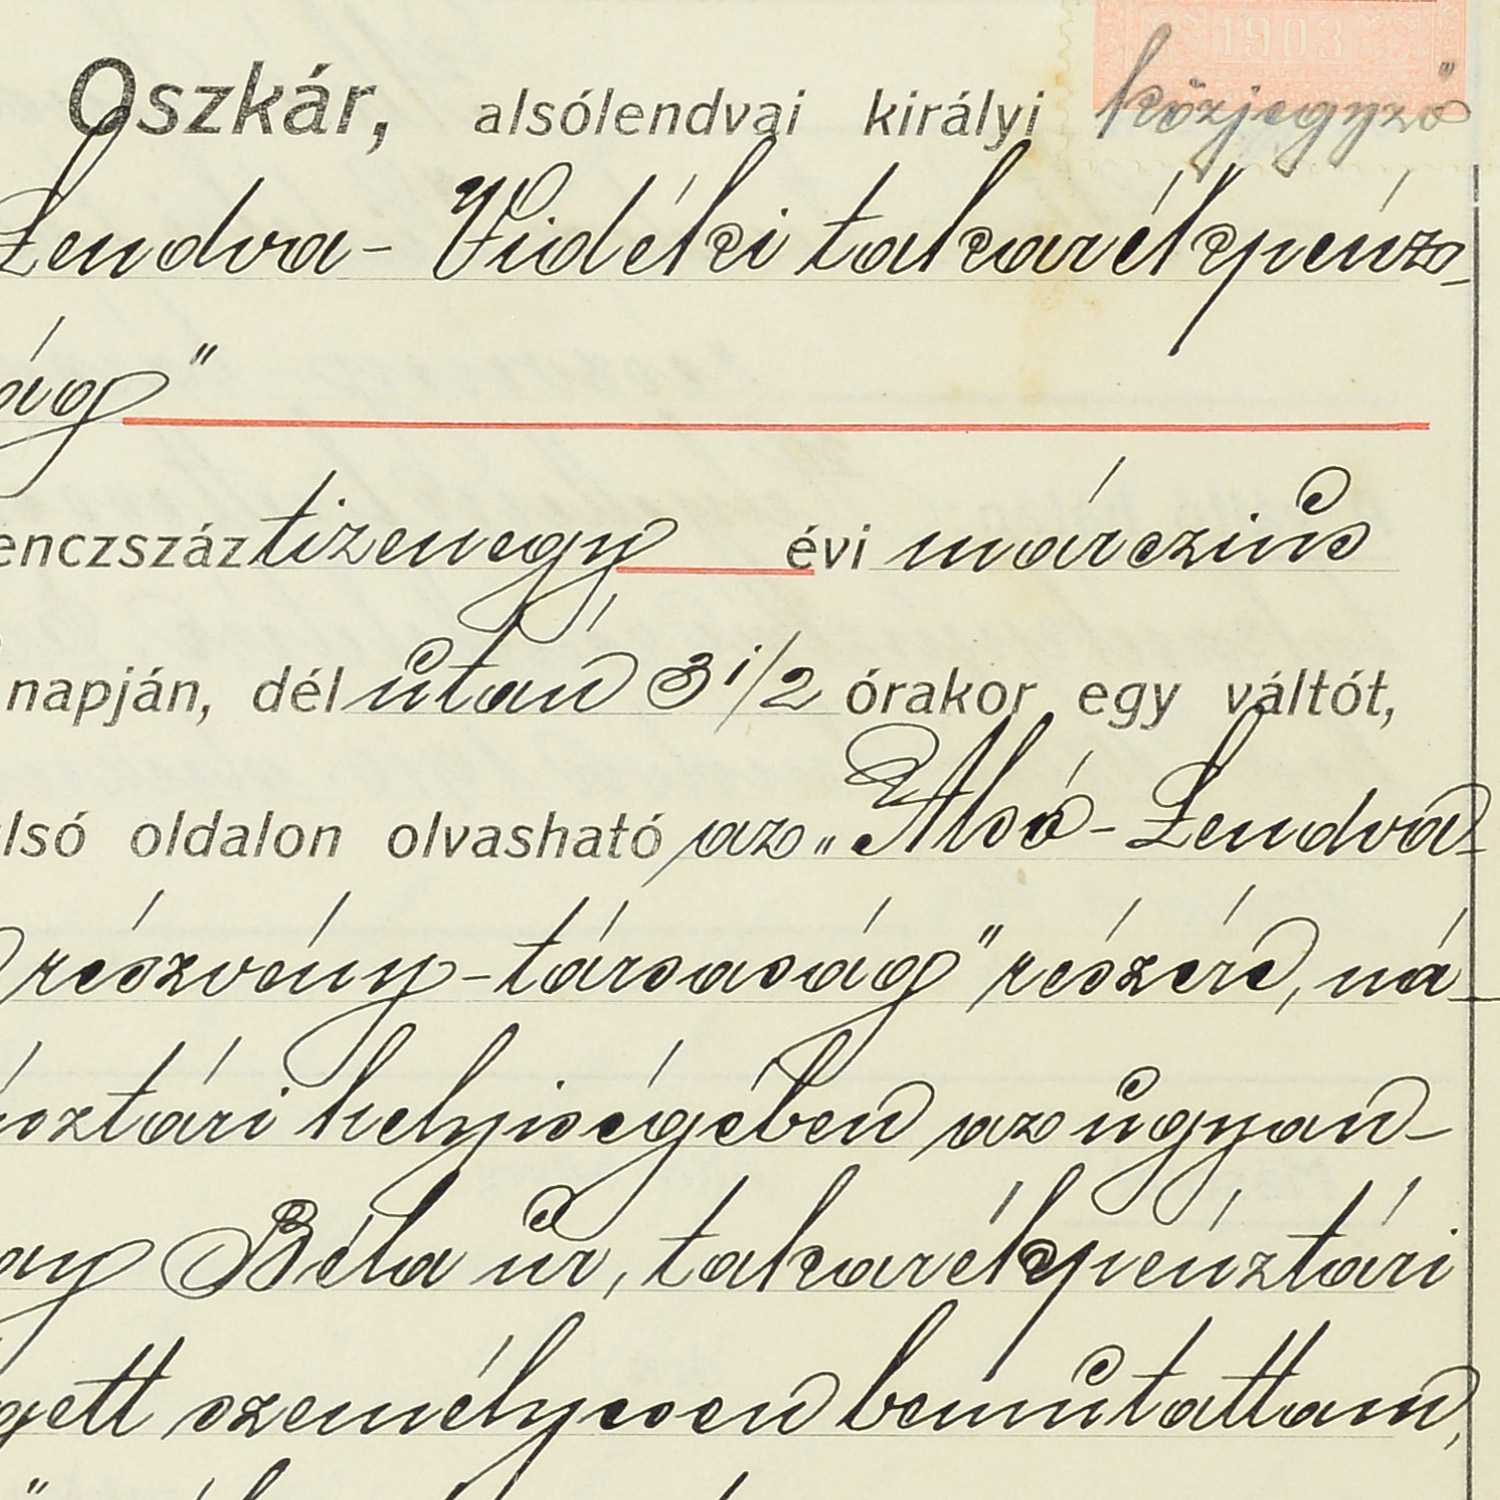 1903
Oszkár, alsólendvai királyi közjegyző
Lendva- Vidéki takarékpénz-
ág"
enczszáz tizenegy évi márczius
napján, dél után 3 1/2 órakor egy váltót,
lsó oldalon olvasható az „Alsó-Lendva-
részvény-társaság" részére, ná-
sztári helyiségében az ugyan-
ay Béla úr, takarékpénztári
gett személyesen bemutattam,